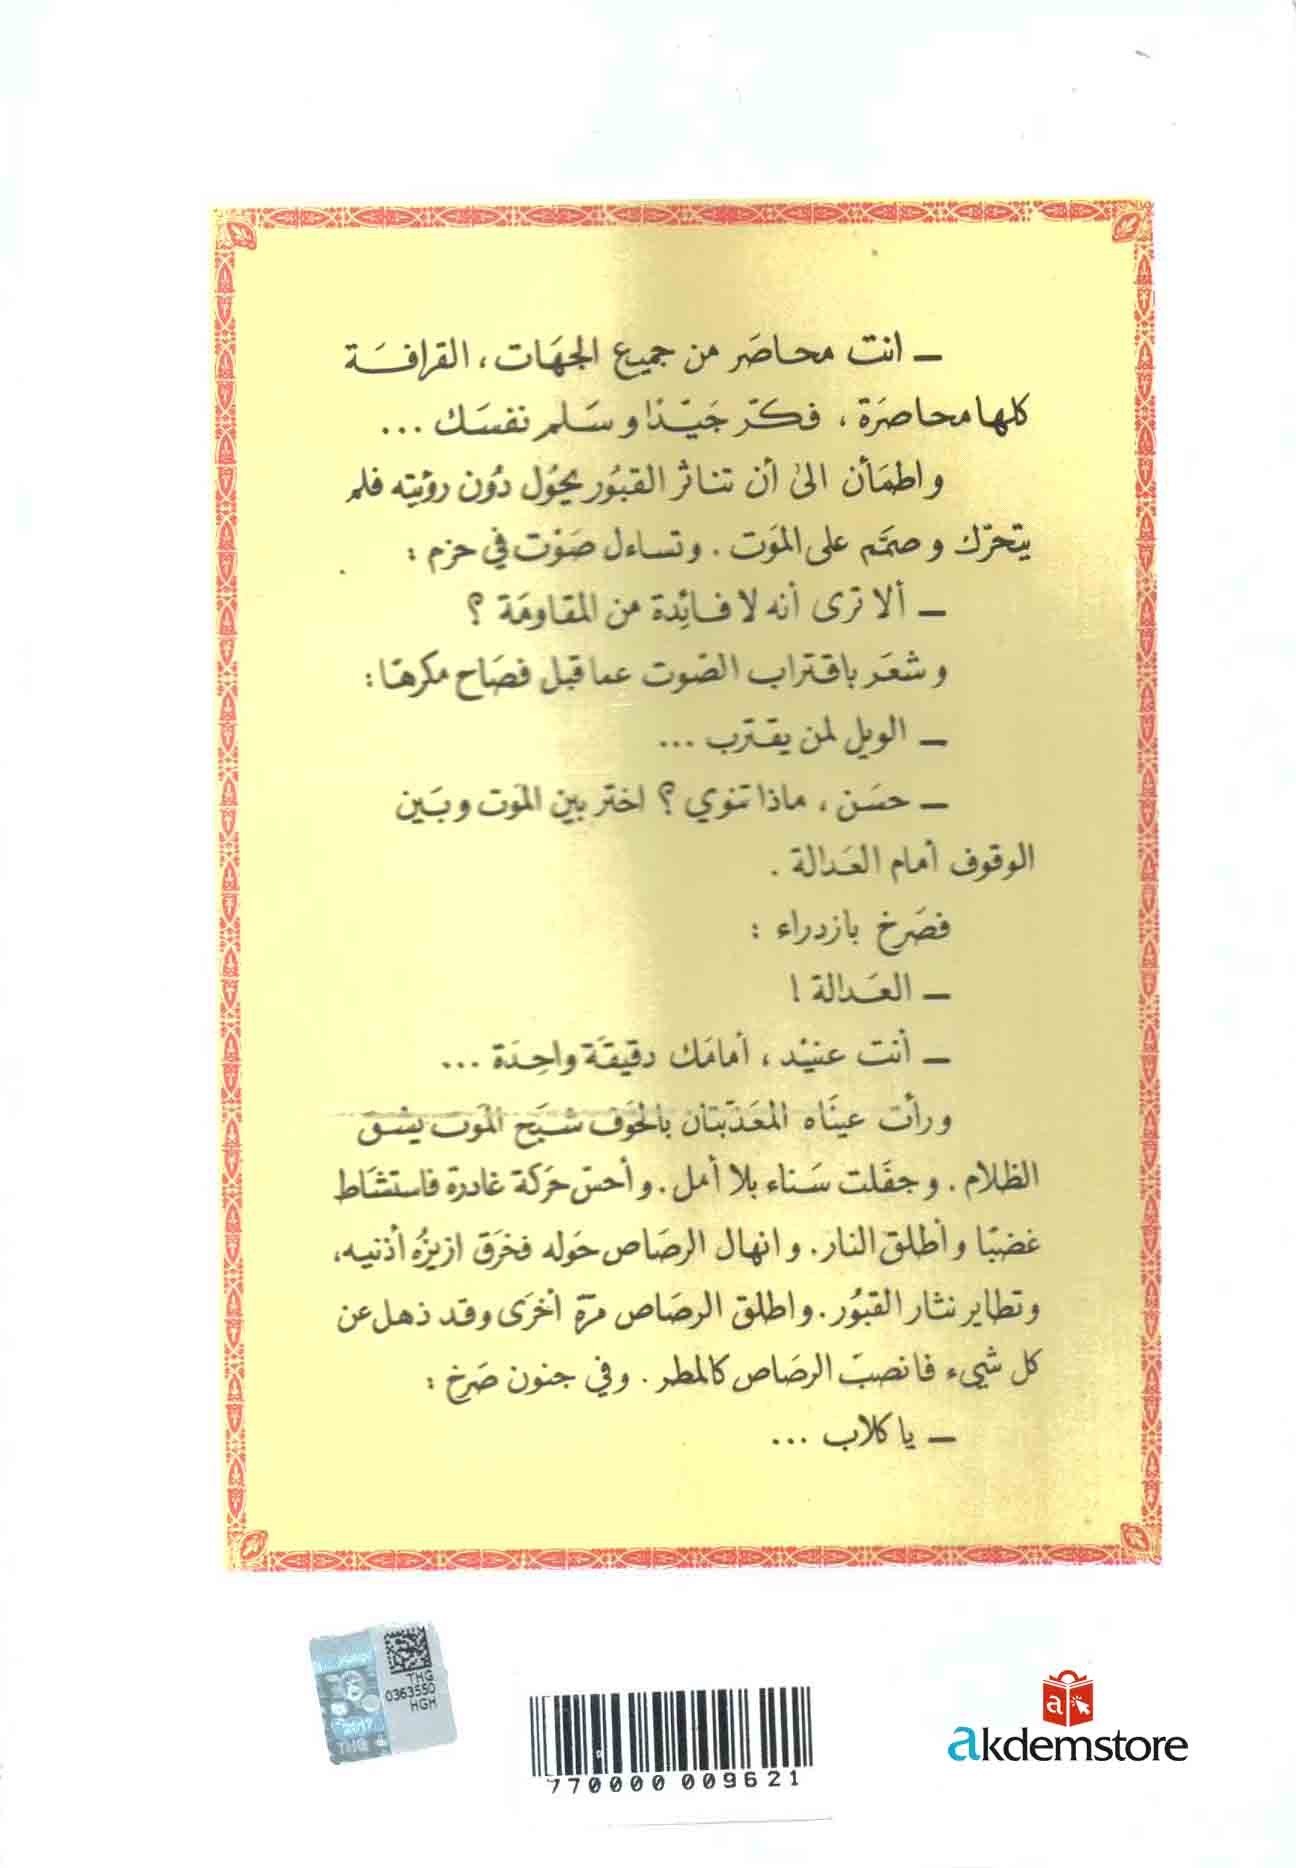 ـ انت محاصَر من جميع الجهَات ، القرافَة
كلها محاصَرة ، فكّر جَيّدًا وسَلم نفسَك ...
واطمأن الى أن تناثر القبُور يحُول دُون رؤيته فلم
يتحرّك وصمّم على الموَت . وتساءل صَوْت في حزم :
ـ ألا ترى أنه لا فائِدة من المقاومَة ؟
وشعَر باقتراب الصّوت عما قبل فصَاح مكرهًا :
ـ الويل لمن يقترب ...
ـ حسَن ، ماذا تنوي ؟ اختر بين الموَت وبَين
الوقوف أمام العَدالة .
فصَرخ بازدراء :
ـ العَدالة !
ـ أنت عنيْد ، أمامَك دقيقَة واحِدَة ...
ورأت عينَاه المعَذّبتان بالخَوف شبَح الموَت يشق
الظلام . وجفَلت سَناء بلا أمل . وأحسّ حَركة غادرة فاستشَاط
غضبًا وأطلق النار . وانهال الرصَاص حَوله فخرَق ازيزُه أذنيه ،
وتطاير نثار القبُور . واطلق الرصَاص مرّة أخرَى وقد ذهل عن
كل شيء فانصبّ الرصَاص كالمطر . وفي جنون صَرخ :
ـ يا كلاب ...
THG
0363550
HGH
2017
THG
770000 009621
a
akdemstore